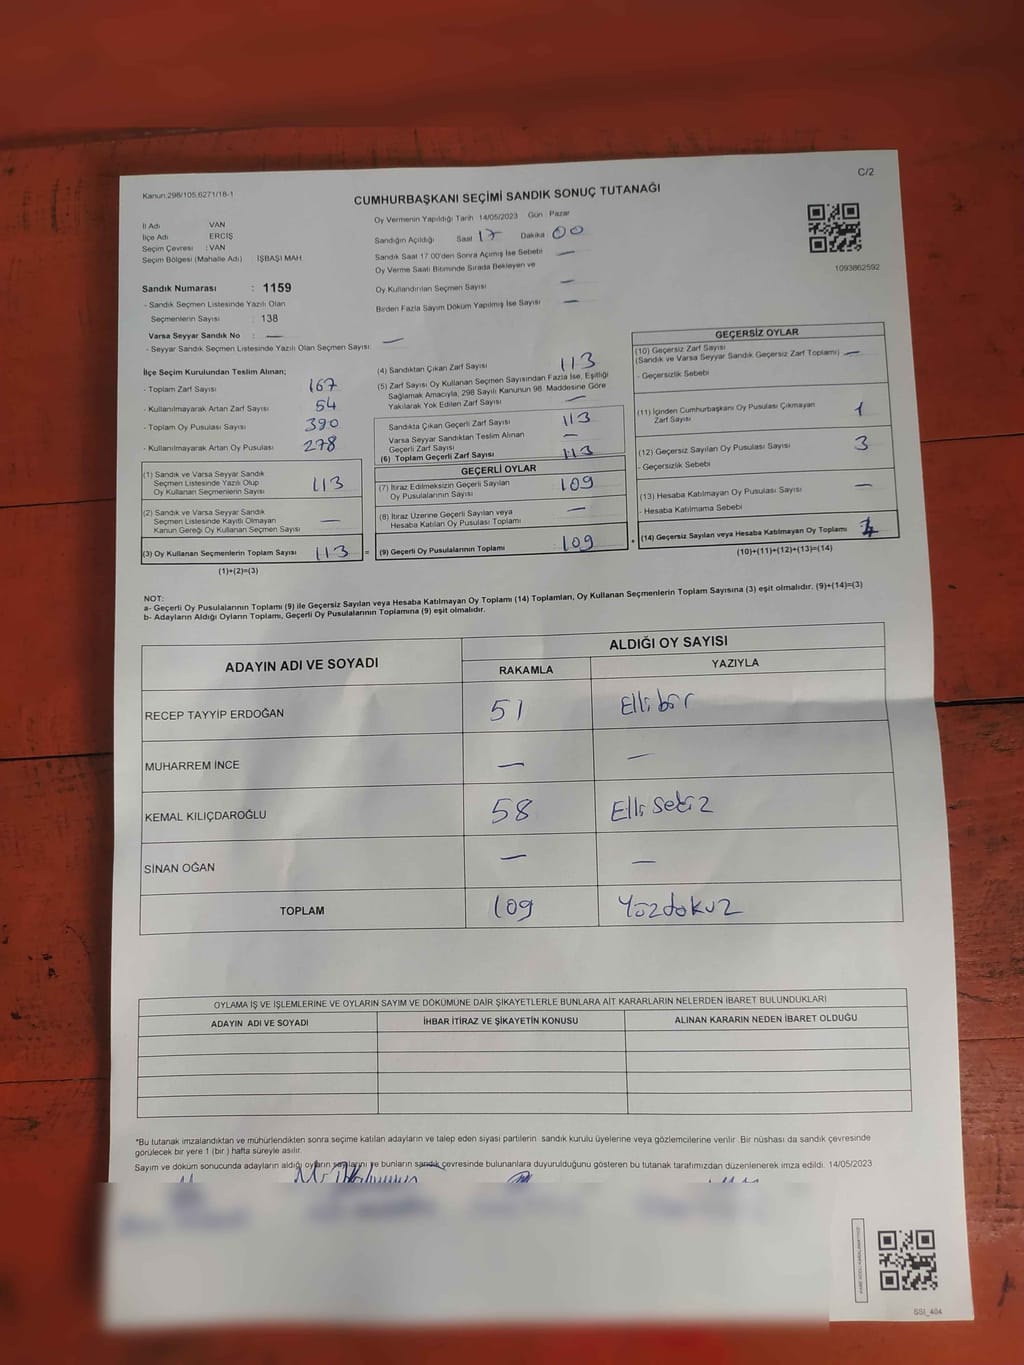 Kanun 298/105,6271/18-1
C/2
CUMHURBAŞKANI SEÇİMİ SANDIK SONUÇ TUTANAĞI
İl Adı VAN
İlçe Adı ERCİŞ
Seçim Çevresi : VAN
Seçim Bölgesi (Mahalle Adı) İŞBAŞI MAH.
Oy Vermenin Yapıldığı Tarih 14/05/2023 Gün Pazar
Sandığın Açıldığı Saat 17 Dakika 00
Sandık Saat 17:00'den Sonra Açılmış İse Sebebi —
Oy Verme Saati Bitiminde Sırada Bekleyen ve
Oy Kullandırılan Seçmen Sayısı —
Birden Fazla Sayım Döküm Yapılmış İse Sayısı —
1093862592
Sandık Numarası : 1159
- Sandık Seçmen Listesinde Yazılı Olan
Seçmenlerin Sayısı : 138
Varsa Seyyar Sandık No : —
- Seyyar Sandık Seçmen Listesinde Yazılı Olan Seçmen Sayısı: —
İlçe Seçim Kurulundan Teslim Alınan;
- Toplam Zarf Sayısı 167
- Kullanılmayarak Artan Zarf Sayısı 54
- Toplam Oy Pusulası Sayısı 390
- Kullanılmayarak Artan Oy Pusulası 278
(1) Sandık ve Varsa Seyyar Sandık
Seçmen Listesinde Yazılı Olup
Oy Kullanan Seçmenlerin Sayısı 113
(2) Sandık ve Varsa Seyyar Sandık
Seçmen Listesinde Kayıtlı Olmayan
Kanun Gereği Oy Kullanan Seçmen Sayısı —
(3) Oy Kullanan Seçmenlerin Toplam Sayısı 113 =
(1)+(2)=(3)
(4) Sandıktan Çıkan Zarf Sayısı 113
(5) Zarf Sayısı Oy Kullanan Seçmen Sayısından Fazla İse, Eşitliği
Sağlamak Amacıyla, 298 Sayılı Kanunun 98. Maddesine Göre
Yakılarak Yok Edilen Zarf Sayısı —
Sandıkta Çıkan Geçerli Zarf Sayısı 113
Varsa Seyyar Sandıktan Teslim Alınan
Geçerli Zarf Sayısı —
(6) Toplam Geçerli Zarf Sayısı 113
GEÇERLİ OYLAR
(7) İtiraz Edilmeksizin Geçerli Sayılan
Oy Pusulalarının Sayısı 109
(8) İtiraz Üzerine Geçerli Sayılan veya
Hesaba Katılan Oy Pusulası Toplamı —
(9) Geçerli Oy Pusulalarının Toplamı 109 +
GEÇERSİZ OYLAR
(10) Geçersiz Zarf Sayısı
(Sandık ve Varsa Seyyar Sandık Geçersiz Zarf Toplamı) —
- Geçersizlik Sebebi
(11) İçinden Cumhurbaşkanı Oy Pusulası Çıkmayan
Zarf Sayısı 1
(12) Geçersiz Sayılan Oy Pusulası Sayısı 3
- Geçersizlik Sebebi
(13) Hesaba Katılmayan Oy Pusulası Sayısı —
- Hesaba Katılmama Sebebi
(14) Geçersiz Sayılan veya Hesaba Katılmayan Oy Toplamı
(10)+(11)+(12)+(13)=(14)
NOT:
a- Geçerli Oy Pusulalarının Toplamı (9) ile Geçersiz Sayılan veya Hesaba Katılmayan Oy Toplamı (14) Toplamları, Oy Kullanan Seçmenlerin Toplam Sayısına (3) eşit olmalıdır. (9)+(14)=(3)
b- Adayların Aldığı Oyların Toplamı, Geçerli Oy Pusulalarının Toplamına (9) eşit olmalıdır.
ADAYIN ADI VE SOYADI
ALDIĞI OY SAYISI
RAKAMLA YAZIYLA
RECEP TAYYİP ERDOĞAN 51 Elli bir
MUHARREM İNCE — —
KEMAL KILIÇDAROĞLU 58 Elli sekiz
SİNAN OĞAN — —
TOPLAM 109 Yüzdokuz
OYLAMA İŞ VE İŞLEMLERİNE VE OYLARIN SAYIM VE DÖKÜMÜNE DAİR ŞİKAYETLERLE BUNLARA AİT KARARLARIN NELERDEN İBARET BULUNDUKLARI
ADAYIN ADI VE SOYADI İHBAR İTİRAZ VE ŞİKAYETİN KONUSU ALINAN KARARIN NEDEN İBARET OLDUĞU
*Bu tutanak imzalandıktan ve mühürlendikten sonra seçime katılan adayların ve talep eden siyasi partilerin sandık kurulu üyelerine veya gözlemcilerine verilir. Bir nüshası da sandık çevresinde
görülecek bir yere 1 (bir) hafta süreyle asılır.
Sayım ve döküm sonucunda adayların aldığı oyların sayılarını ve bunların sandık çevresinde bulunanlara duyurulduğunu gösteren bu tutanak tarafımızdan düzenlenerek imza edildi. 14/05/2023
SSI_404